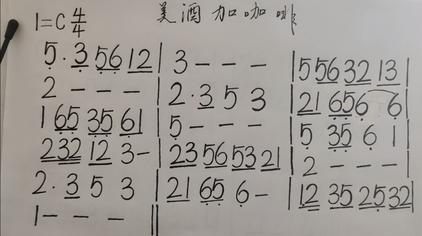 1=C 4/4 美酒加咖啡
5· 3 56 12 | 3 - - - | 5 56 32 13 |
2 - - - | 2· 3 5 3 | 21 65 6 6 |
1 65 35 61 | 5 - - - | 5 35 6 1 |
232 12 3 - | 23 56 53 21 | 2 - - - |
2· 3 5 3 | 21 65 6 - | 12 35 25 32 |
1 - - - ||